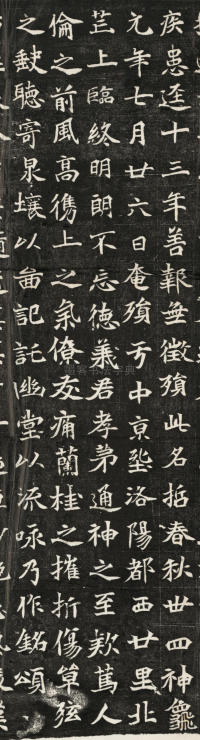 疾患迳十三年善報無徵殞此名哲春秋丗四神龜
元年七月廿六日奄殞于中京塟洛陽都西廿里北
芒上臨終明朗不忘德義君孝弟通神之至歎篤人
倫之前風高儁上之氣僚友痛蘭桂之摧折傷弦
之聽寄泉壤以畱記託幽堂以流咏乃作銘頌